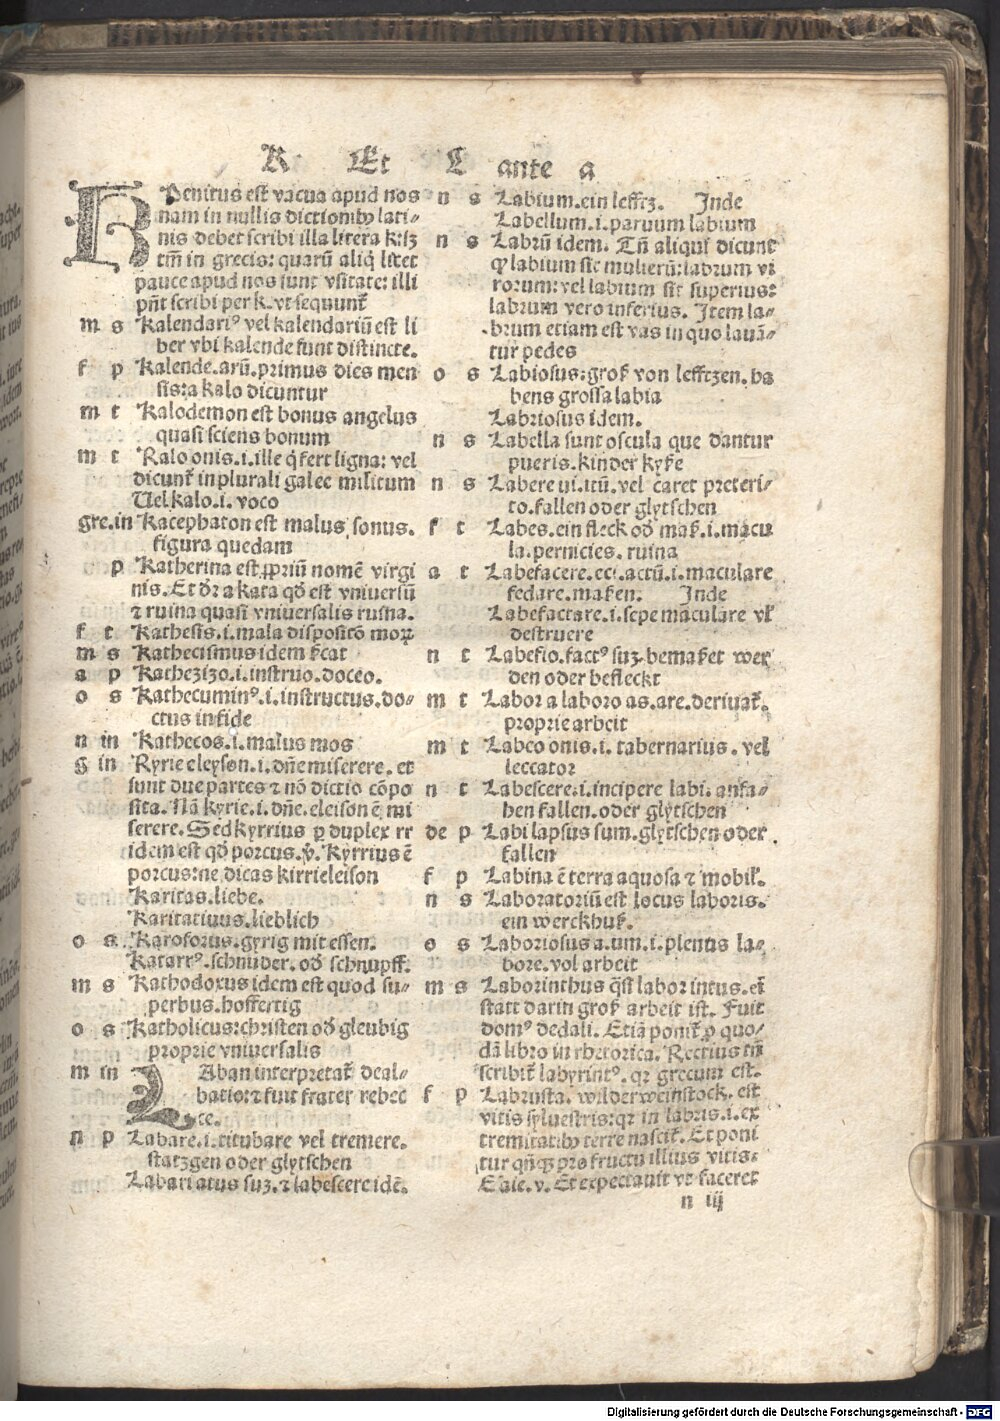 K Et L ante a
K Penitus est vacua apud nos
nam in nullis dictionibꝰ lati⸗
nis debet scribi illa litera k: sꝫ
tm̄ in grecis: quarū aliq̄ licet
pauce apud nos sunt vsitate: illi
pn̄t scribi per k. vt sequunt᷑
m s Kalendariꝰ vel kalendariū est li
ber vbi kalende sunt distincte.
f p Kalende. arū. primus dies men
sis: a kalo dicuntur
m t Kalodemon est bonus angelus
quasi sciens bonum
m t Kalo onis. i. ille q̇ fert ligna: vel
dicunt᷑ in plurali galee militum
Uel kalo. i. voco
gre. in Kacephaton est malus sonus.
figura quedam
p Katherina est ꝓpriū nomē virgi
nis. Et dr̄ a kata qđ est vniuersū
⁊ ruina quasi vniuersalis ruina.
f t Kathesis. i. mala dispositō moꝝ
m s Kathecismus idem
a p Kathezizo. i. instruo. doceo.
o s Kathecuminꝰ. i. instructus. do⸗
ctus in fide
n in Kathecos. i. malus mos
g in Kyrie eleyson. i. dn̄e miserere. et
sunt due partes ⁊ nō dictio cōpo
sita. Nā kyrie. i. dn̄e. eleison ē mi
serere. Sed kyrrius ꝑ duplex rr
idem est qđ porcus. v̓. Kyrrius ē
porcus: ne dicas kirrieleison
Karitas. liebe.
Karitatiuus. lieblich
o s Karoforus. gyrig mit essen.
Katarrꝰ. schnuder. ođ schnupff.
m s Kathodoxus idem est quod su⸗
perbus. hoffertig
o s Katholicus: christen ođ gleubig
proprie vniuersalis
m in Laban interpretat᷑ deal⸗
batio: ⁊ fuit frater rebec
ce.
n p Labare. i. titubare vel tremere.
statzgen oder glytschen
Labari atus suꝫ. ⁊ labescere idē.
n s Labium. ein lefftz. Inde
Labellum. i. paruum labium
n s Labrū idem. Tn̄ aliqui dicunt
ꝙ labium sit mulierū: labrum vi
rorum: vel labium sit superius:
labrum vero inferius. Item la⸗
brum etiam est vas in quo lauā⸗
tur pedes
o s Labiosus: groß von lefftzen. ha
bens grossa labia
Labriosus idem.
n s Labella sunt oscula que dantur
pueris. kinder kyße
n s Labere ui. itū. vel caret preteri⸗
to. fallen oder glytschen
f t Labes. ein fleck ođ maß. i. macu
la. pernicies. ruina
a t Labefacere. eci. actū. i. maculare
fedare. maßen. Inde
Labefactare. i. sepe maculare vl̓
destruere
n t Labefio. factꝰ suꝫ. bemaßet wer
den oder befleckt
m t Labor a laboro as. are. deriuat᷑.
proprie arbeit
m t Labeo onis. i. tabernarius. vel
leccator
n t Labescere. i. incipere labi. anfa⸗
hen fallen. oder glytschen
de p Labi lapsus sum. glytschen oder
fallen
f p Labina ē terra aquosa ⁊ mobil̓.
n s Laboratoriū est locus laboris.
ein werckhuß.
o s Laboriosus a. um. i. plenus la⸗
bore. vol arbeit
m s Laborinthus q̄si labor intus. ei
statt darin groß arbeit ist. Fuit
domꝰ dedali. Etiā ponit᷑ ꝓ quo⸗
dā libro in rhetorica. Rectius tn̄
scribit᷑ labyrintꝰ. qr grecum est.
f p Labrusta. wilder weinstock. est
vitis syluestris: qr in labris. i. ex
tremitatibꝰ terre nascit᷑. Et poni
tur qn̄qꝫ pro fructu illius vitis:
Esaie. v. Et expectauit vt faceret
n iij
Digitalisierung gefördert durch die Deutsche Forschungsgemeinschaft - DFG